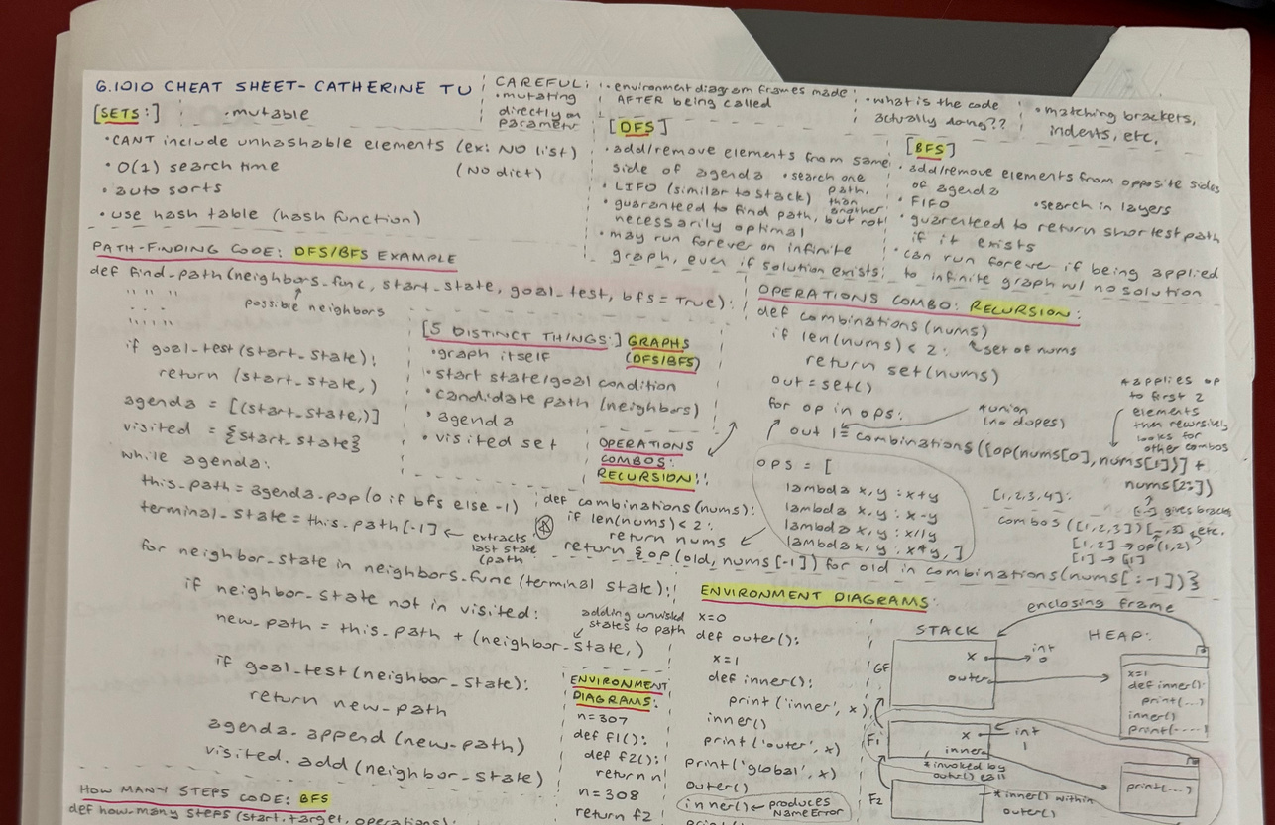 6.1010 CHEAT SHEET- CATHERINE TU
CAREFUL:
• mutating
directly on
parameter
• environment diagram frames made
AFTER being called
• what is the code
actually doing??
• matching brackets,
indents, etc.
[SETS:]
• mutable
• CANT include unhashable elements (ex: NO list)
(NO dict)
• O(1) search time
• auto sorts
• use hash table (hash function)
[DFS]
• add/remove elements from same
side of agenda
• search one
path,
than
another
• LIFO (similar to stack)
• guaranteed to find path, but not
necessarily optimal
• may run forever on infinite
graph, even if solution exists
[BFS]
• add/remove elements from opposite sides
of agenda
• FIFO
• search in layers
• guarenteed to return shortest path
if it exists
• can run forever if being applied
to infinite graph w/ no solution
PATH-FINDING CODE: DFS/BFS EXAMPLE
def find_path(neighbors_func, start_state, goal_test, bfs = True):
possible neighbors
" " "
" " "
if goal_test(start_state):
return (start_state,)
agenda = [(start_state,)]
visited = {start_state}
while agenda:
this_path = agenda.pop(0 if bfs else -1)
terminal_state = this_path[-1] ← extracts
last state
(path
for neighbor_state in neighbors_func(terminal state):
if neighbor_state not in visited:
new_path = this_path + (neighbor_state,)
adding unvisited
states to path
if goal_test(neighbor_state):
return new_path
agenda.append(new_path)
visited.add(neighbor_state)
[5 DISTINCT THINGS:] GRAPHS
(DFS/BFS)
• graph itself
• start state/goal condition
• candidate path (neighbors)
• agenda
• visited set
OPERATIONS
COMBOS:
RECURSION!!
def combinations(nums):
if len(nums) < 2:
return nums
return {op(old, nums[-1]) for old in combinations(nums[:-1])}
OPERATIONS COMBO: RECURSION:
def combinations(nums)
if len(nums) < 2:
set of nums
return set(nums)
out = set()
for op in ops:
*union
(no dopes)
out |= combinations([op(nums[0], nums[1])] +
nums[2:])
*applies op
to first 2
elements
then recursively
looks for
other combos
[_:_] gives brackets
ops = [
lambda x, y : x+y
lambda x, y : x-y
lambda x, y : x//y
lambda x, y : x*y, ]
[1,2,3,4]:
combos([1,2,3])[_,3], etc.
[1,2] → op(1,2)
[1] → [1]
ENVIRONMENT
DIAGRAMS:
n = 307
def f1():
def f2():
return n
n = 308
return f2
ENVIRONMENT DIAGRAMS:
x = 0
def outer():
x = 1
def inner():
print('inner', x)
inner()
print('outer', x)
print('global', x)
outer()
inner() ← produces
NameError
enclosing frame
STACK
HEAP:
GF
x
int
0
outer
x=1
def inner()
print(...)
inner()
print(....)
F1
x
int
1
inner
*invoked by
outer() call
print(...)
F2
* inner() within
outer()
HOW MANY STEPS CODE: BFS
def how_many steps (start, target, operations):